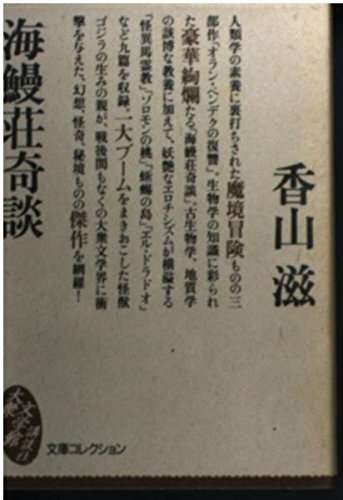 香山 滋
人類学の素養に裏打ちされた魔境冒険ものの三
部作『オラン・ペンデクの復讐』、生物学の知識に彩られ
た豪華絢爛たる『海鰻荘奇談』、古生物学、地質学
の該博な教養に加えて、妖艶なエロチシズムが横溢する
『怪異馬霊教』『ソロモンの桃』『蜥蜴の島』『エル・ドラドオ』
など九篇を収録。一大ブームをまきおこした怪獣
ゴジラの生みの親が、戦後間もなくの大衆文学界に衝
撃を与えた、幻想、怪奇、秘境ものの傑作を網羅!
海鰻荘奇談
大衆文学館
文庫コレクション